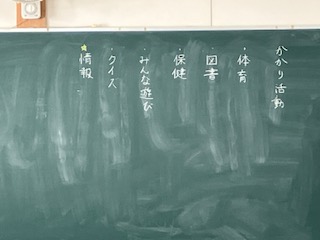 かかり活動
・体育
・図書
・保健
・みんな遊び
・クイズ
☆情報